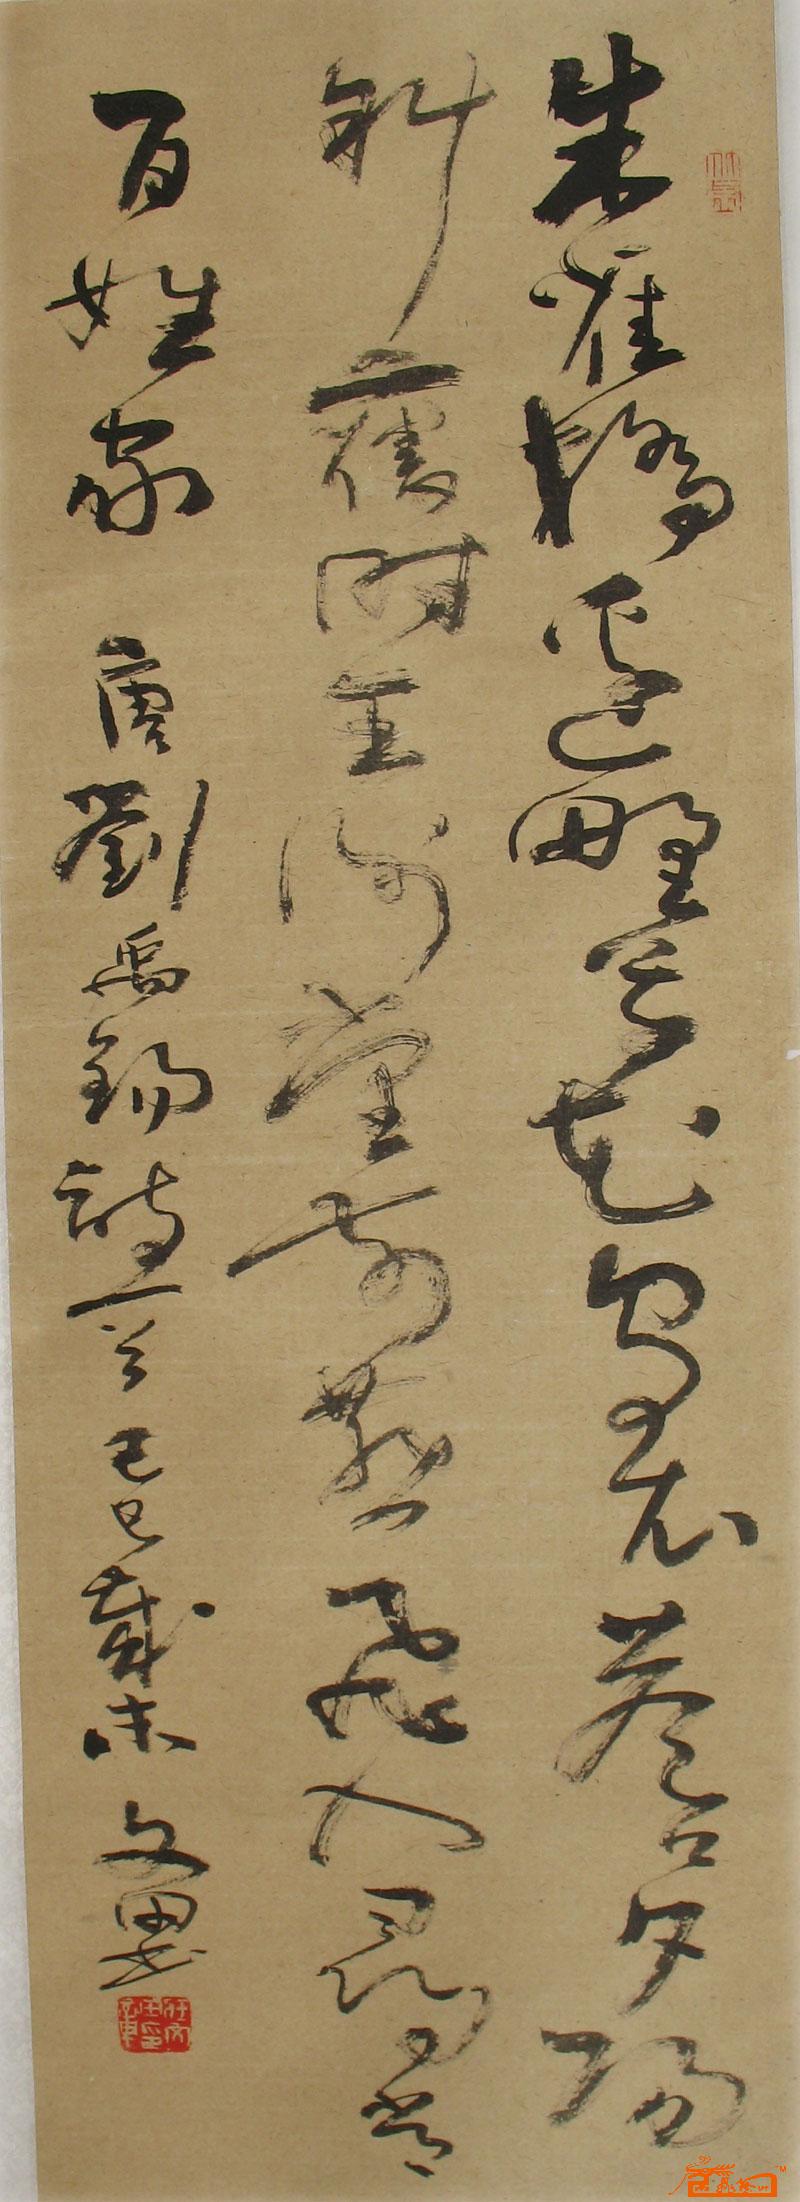 朱雀橋邊野草花烏衣巷口夕陽
斜舊時王謝堂前燕飛入尋常
百姓家 唐劉禹錫詩一首 己巳歲末 文田書